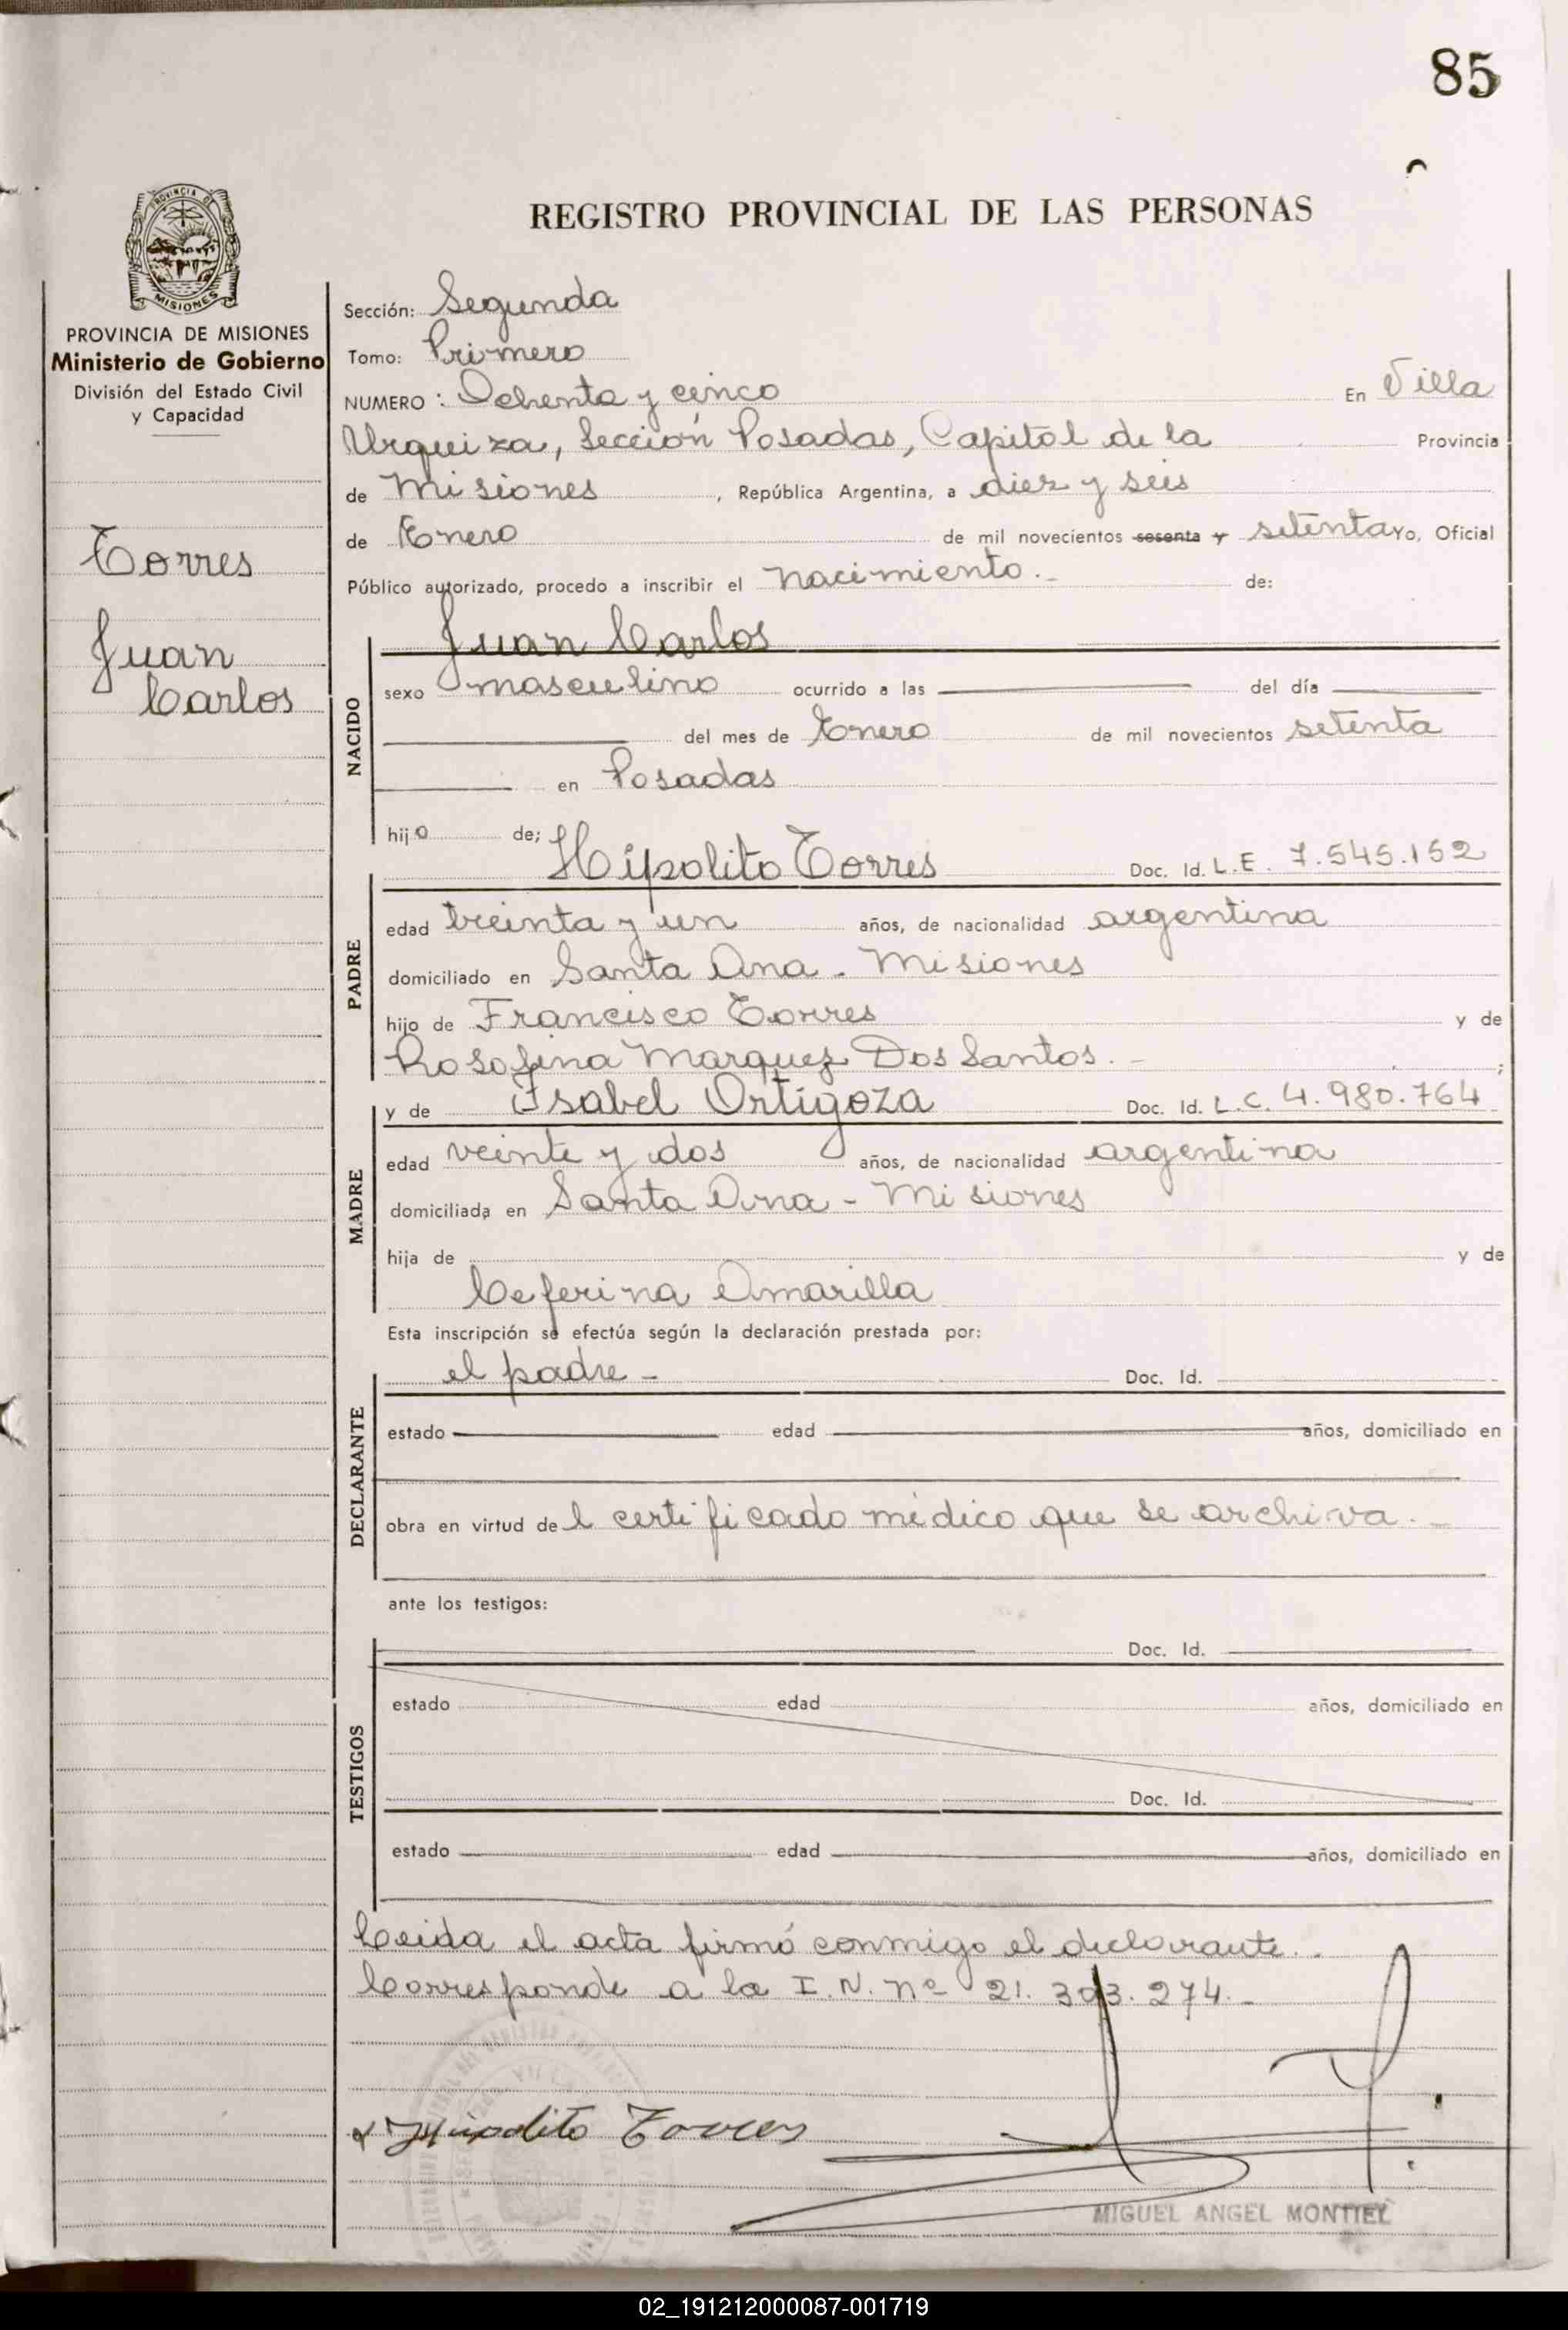 85
PROVINCIA DE
MISIONES
PROVINCIA DE MISIONES
Ministerio de Gobierno
División del Estado Civil
y Capacidad
Torres
Juan
Carlos
REGISTRO PROVINCIAL DE LAS PERSONAS
Sección: Segunda
Tomo: Primero
NUMERO: Ochenta y cinco En Villa
Urquiza, Sección Posadas, Capital de la Provincia
de Misiones, República Argentina, a diez y seis
de Enero de mil novecientos sesenta y setenta Yo, Oficial
Público autorizado, procedo a inscribir el nacimiento.- de:
Juan Carlos
NACIDO
sexo masculino ocurrido a las del día
del mes de Enero de mil novecientos setenta
en Posadas
hijo de;
Hipolito Torres Doc. Id. L.E. 7.545.152
PADRE
edad treinta y un años, de nacionalidad argentina
domiciliado en Santa Ana - Misiones
hijo de Francisco Torres y de
Marquez Dos Santos.- ;
y de Isabel Ortigoza Doc. Id. L.C. 4.980.764
MADRE
edad veinte y dos años, de nacionalidad argentina
domiciliada en Santa Ana - Misiones
hija de y de
Ceferina Amarilla
Esta inscripción se efectúa según la declaración prestada por:
el padre - Doc. Id.
DECLARANTE
estado edad años, domiciliado en
obra en virtud del certificado médico que se archiva.-
ante los testigos:
Doc. Id.
TESTIGOS
estado edad años, domiciliado en
Doc. Id.
estado edad años, domiciliado en
Leida el acta firmó conmigo el declarante.-
Corresponde a la I.N. nº 21.303.274.-
Hipolito Torres
MIGUEL ANGEL MONTIEL
02_191212000087-001719